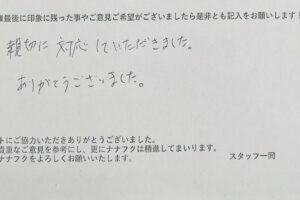 最後に印象に残った事やご意見ご希望がございましたら是非とも記入をお願いします
親切に対応していただきました。
ありがとうございました。
トにご協力いただきありがとうございました。
貴重なご意見を参考にし、更にナナフクは精進してまいります。
ナナフクをよろしくお願いいたします。
スタッフ一同